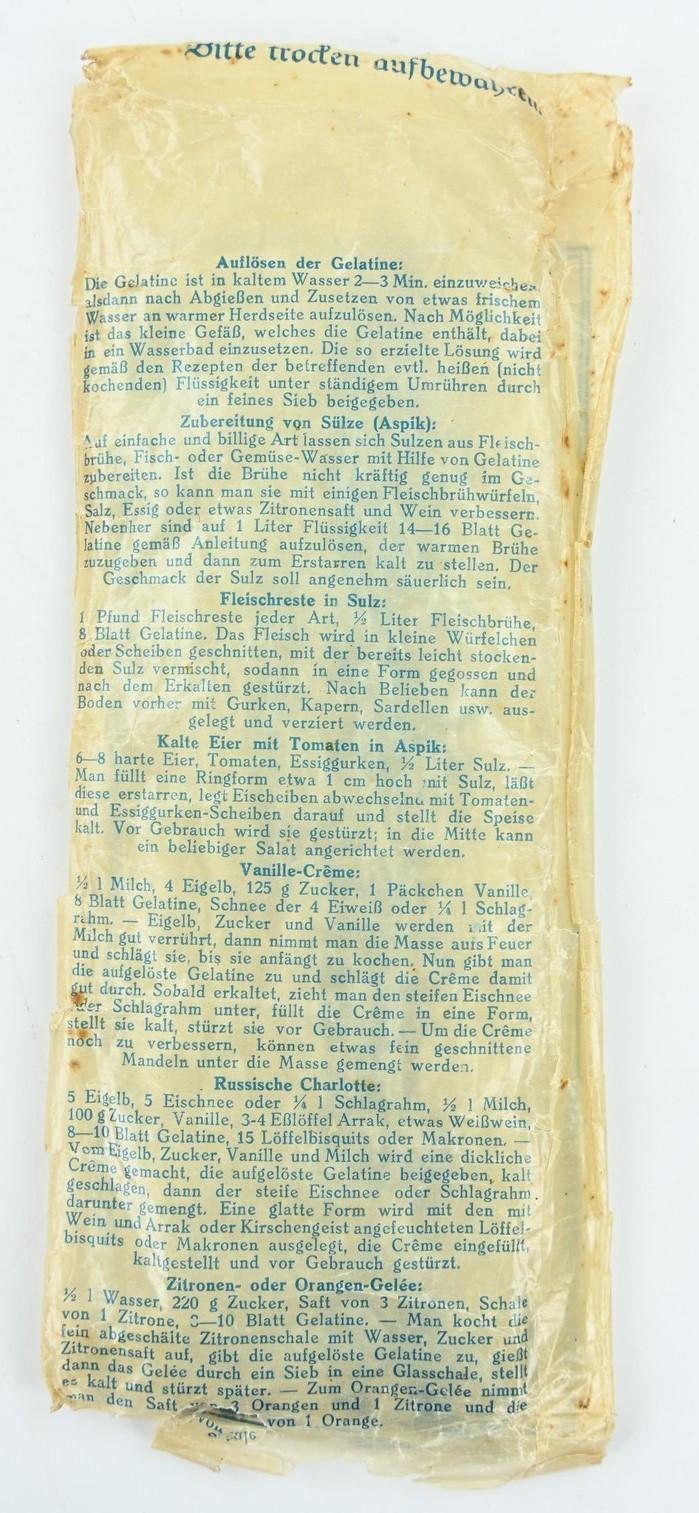 Bitte trocken aufbewahren.
Auflösen der Gelatine:
Die Gelatine ist in kaltem Wasser 2—3 Min. einzuweichen
alsdann nach Abgießen und Zusetzen von etwas frischem
Wasser an warmer Herdseite aufzulösen. Nach Möglichkeit
ist das kleine Gefäß, welches die Gelatine enthält, dabei
in ein Wasserbad einzusetzen. Die so erzielte Lösung wird
gemäß den Rezepten der betreffenden evtl. heißen (nicht
kochenden) Flüssigkeit unter ständigem Umrühren durch
ein feines Sieb beigegeben.
Zubereitung von Sülze (Aspik):
Auf einfache und billige Art lassen sich Sulzen aus Fleisch-
brühe, Fisch- oder Gemüse-Wasser mit Hilfe von Gelatine
zubereiten. Ist die Brühe nicht kräftig genug im Ge-
schmack, so kann man sie mit einigen Fleischbrühwürfeln,
Salz, Essig oder etwas Zitronensaft und Wein verbessern.
Nebenher sind auf 1 Liter Flüssigkeit 14—16 Blatt Ge-
latine gemäß Anleitung aufzulösen, der warmen Brühe
zuzugeben und dann zum Erstarren kalt zu stellen. Der
Geschmack der Sulz soll angenehm säuerlich sein.
Fleischreste in Sulz:
1 Pfund Fleischreste jeder Art, ½ Liter Fleischbrühe,
8 Blatt Gelatine. Das Fleisch wird in kleine Würfelchen
oder Scheiben geschnitten, mit der bereits leicht stocken-
den Sulz vermischt, sodann in eine Form gegossen und
nach dem Erkalten gestürzt. Nach Belieben kann der
Boden vorher mit Gurken, Kapern, Sardellen usw. aus-
gelegt und verziert werden.
Kalte Eier mit Tomaten in Aspik:
6—8 harte Eier, Tomaten, Essiggurken, ½ Liter Sulz. —
Man füllt eine Ringform etwa 1 cm hoch mit Sulz, läßt
diese erstarren, legt Eischeiben abwechselnd mit Tomaten-
und Essiggurken-Scheiben darauf und stellt die Speise
kalt. Vor Gebrauch wird sie gestürzt; in die Mitte kann
ein beliebiger Salat angerichtet werden.
Vanille-Crême:
½ l Milch, 4 Eigelb, 125 g Zucker, 1 Päckchen Vanille,
8 Blatt Gelatine, Schnee der 4 Eiweiß oder ¼ l Schlag-
rahm. — Eigelb, Zucker und Vanille werden mit der
Milch gut verrührt, dann nimmt man die Masse aufs Feuer
und schlägt sie, bis sie anfängt zu kochen. Nun gibt man
die aufgelöste Gelatine zu und schlägt die Crême damit
gut durch. Sobald erkaltet, zieht man den steifen Eischnee
oder Schlagrahm unter, füllt die Crême in eine Form,
stellt sie kalt, stürzt sie vor Gebrauch. — Um die Crême
noch zu verbessern, können etwas fein geschnittene
Mandeln unter die Masse gemengt werden.
Russische Charlotte:
5 Eigelb, 5 Eischnee oder ¼ l Schlagrahm, ½ l Milch,
100 g Zucker, Vanille, 3-4 Eßlöffel Arrak, etwas Weißwein,
8—10 Blatt Gelatine, 15 Löffelbisquits oder Makronen. —
Vom Eigelb, Zucker, Vanille und Milch wird eine dickliche
Crême gemacht, die aufgelöste Gelatine beigegeben, kalt
geschlagen, dann der steife Eischnee oder Schlagrahm
darunter gemengt. Eine glatte Form wird mit den mit
Wein und Arrak oder Kirschengeist angefeuchteten Löffel-
bisquits oder Makronen ausgelegt, die Crême eingefüllt,
kaltgestellt und vor Gebrauch gestürzt.
Zitronen- oder Orangen-Gelée:
½ l Wasser, 220 g Zucker, Saft von 3 Zitronen, Schale
von 1 Zitrone, 8—10 Blatt Gelatine. — Man kocht die
fein abgeschälte Zitronenschale mit Wasser, Zucker und
Zitronensaft auf, gibt die aufgelöste Gelatine zu, gießt
dann das Gelée durch ein Sieb in eine Glasschale, stellt
es kalt und stürzt später. — Zum Orangen-Gelée nimmt
man den Saft von 3 Orangen und 1 Zitrone und die
von 1 Orange.